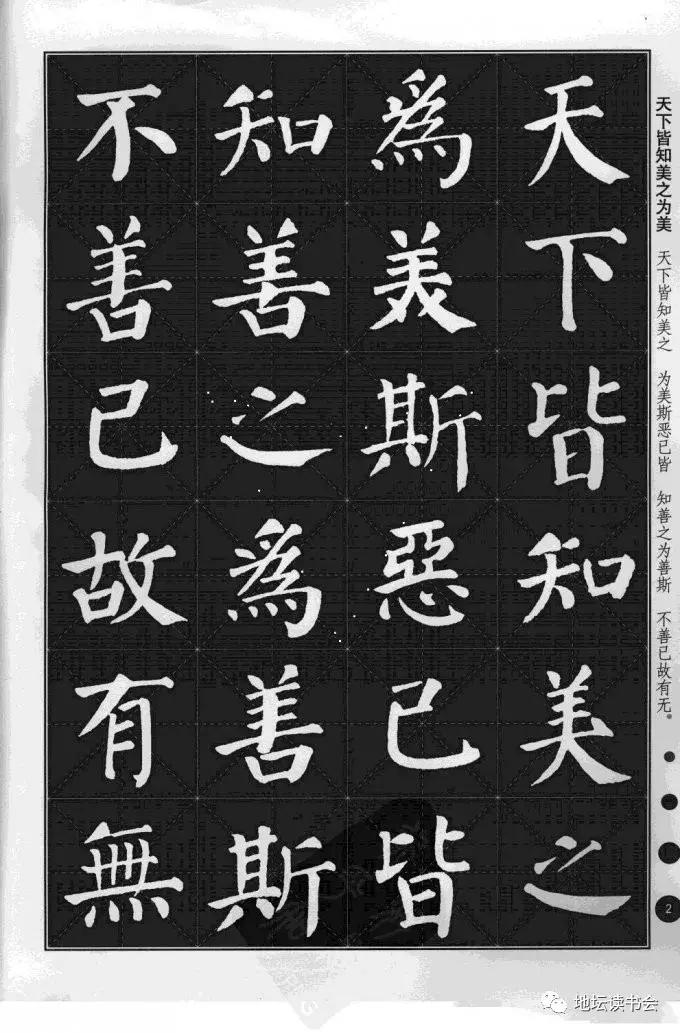 天下皆知美之
爲美斯惡已皆
知善之爲善斯
不善已故有無
天下皆知美之为美
天下皆知美之 为美斯恶已皆 知善之为善斯 不善已故有无。
2
地坛读书会